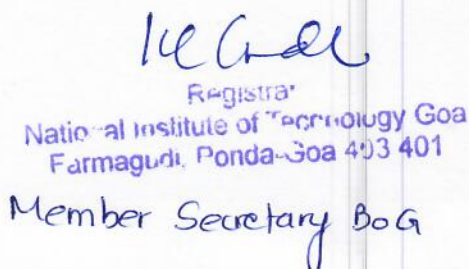 Registrar
National Institute of Technology Goa
Farmagudi, Ponda-Goa 403 401
Member Secretary BoG